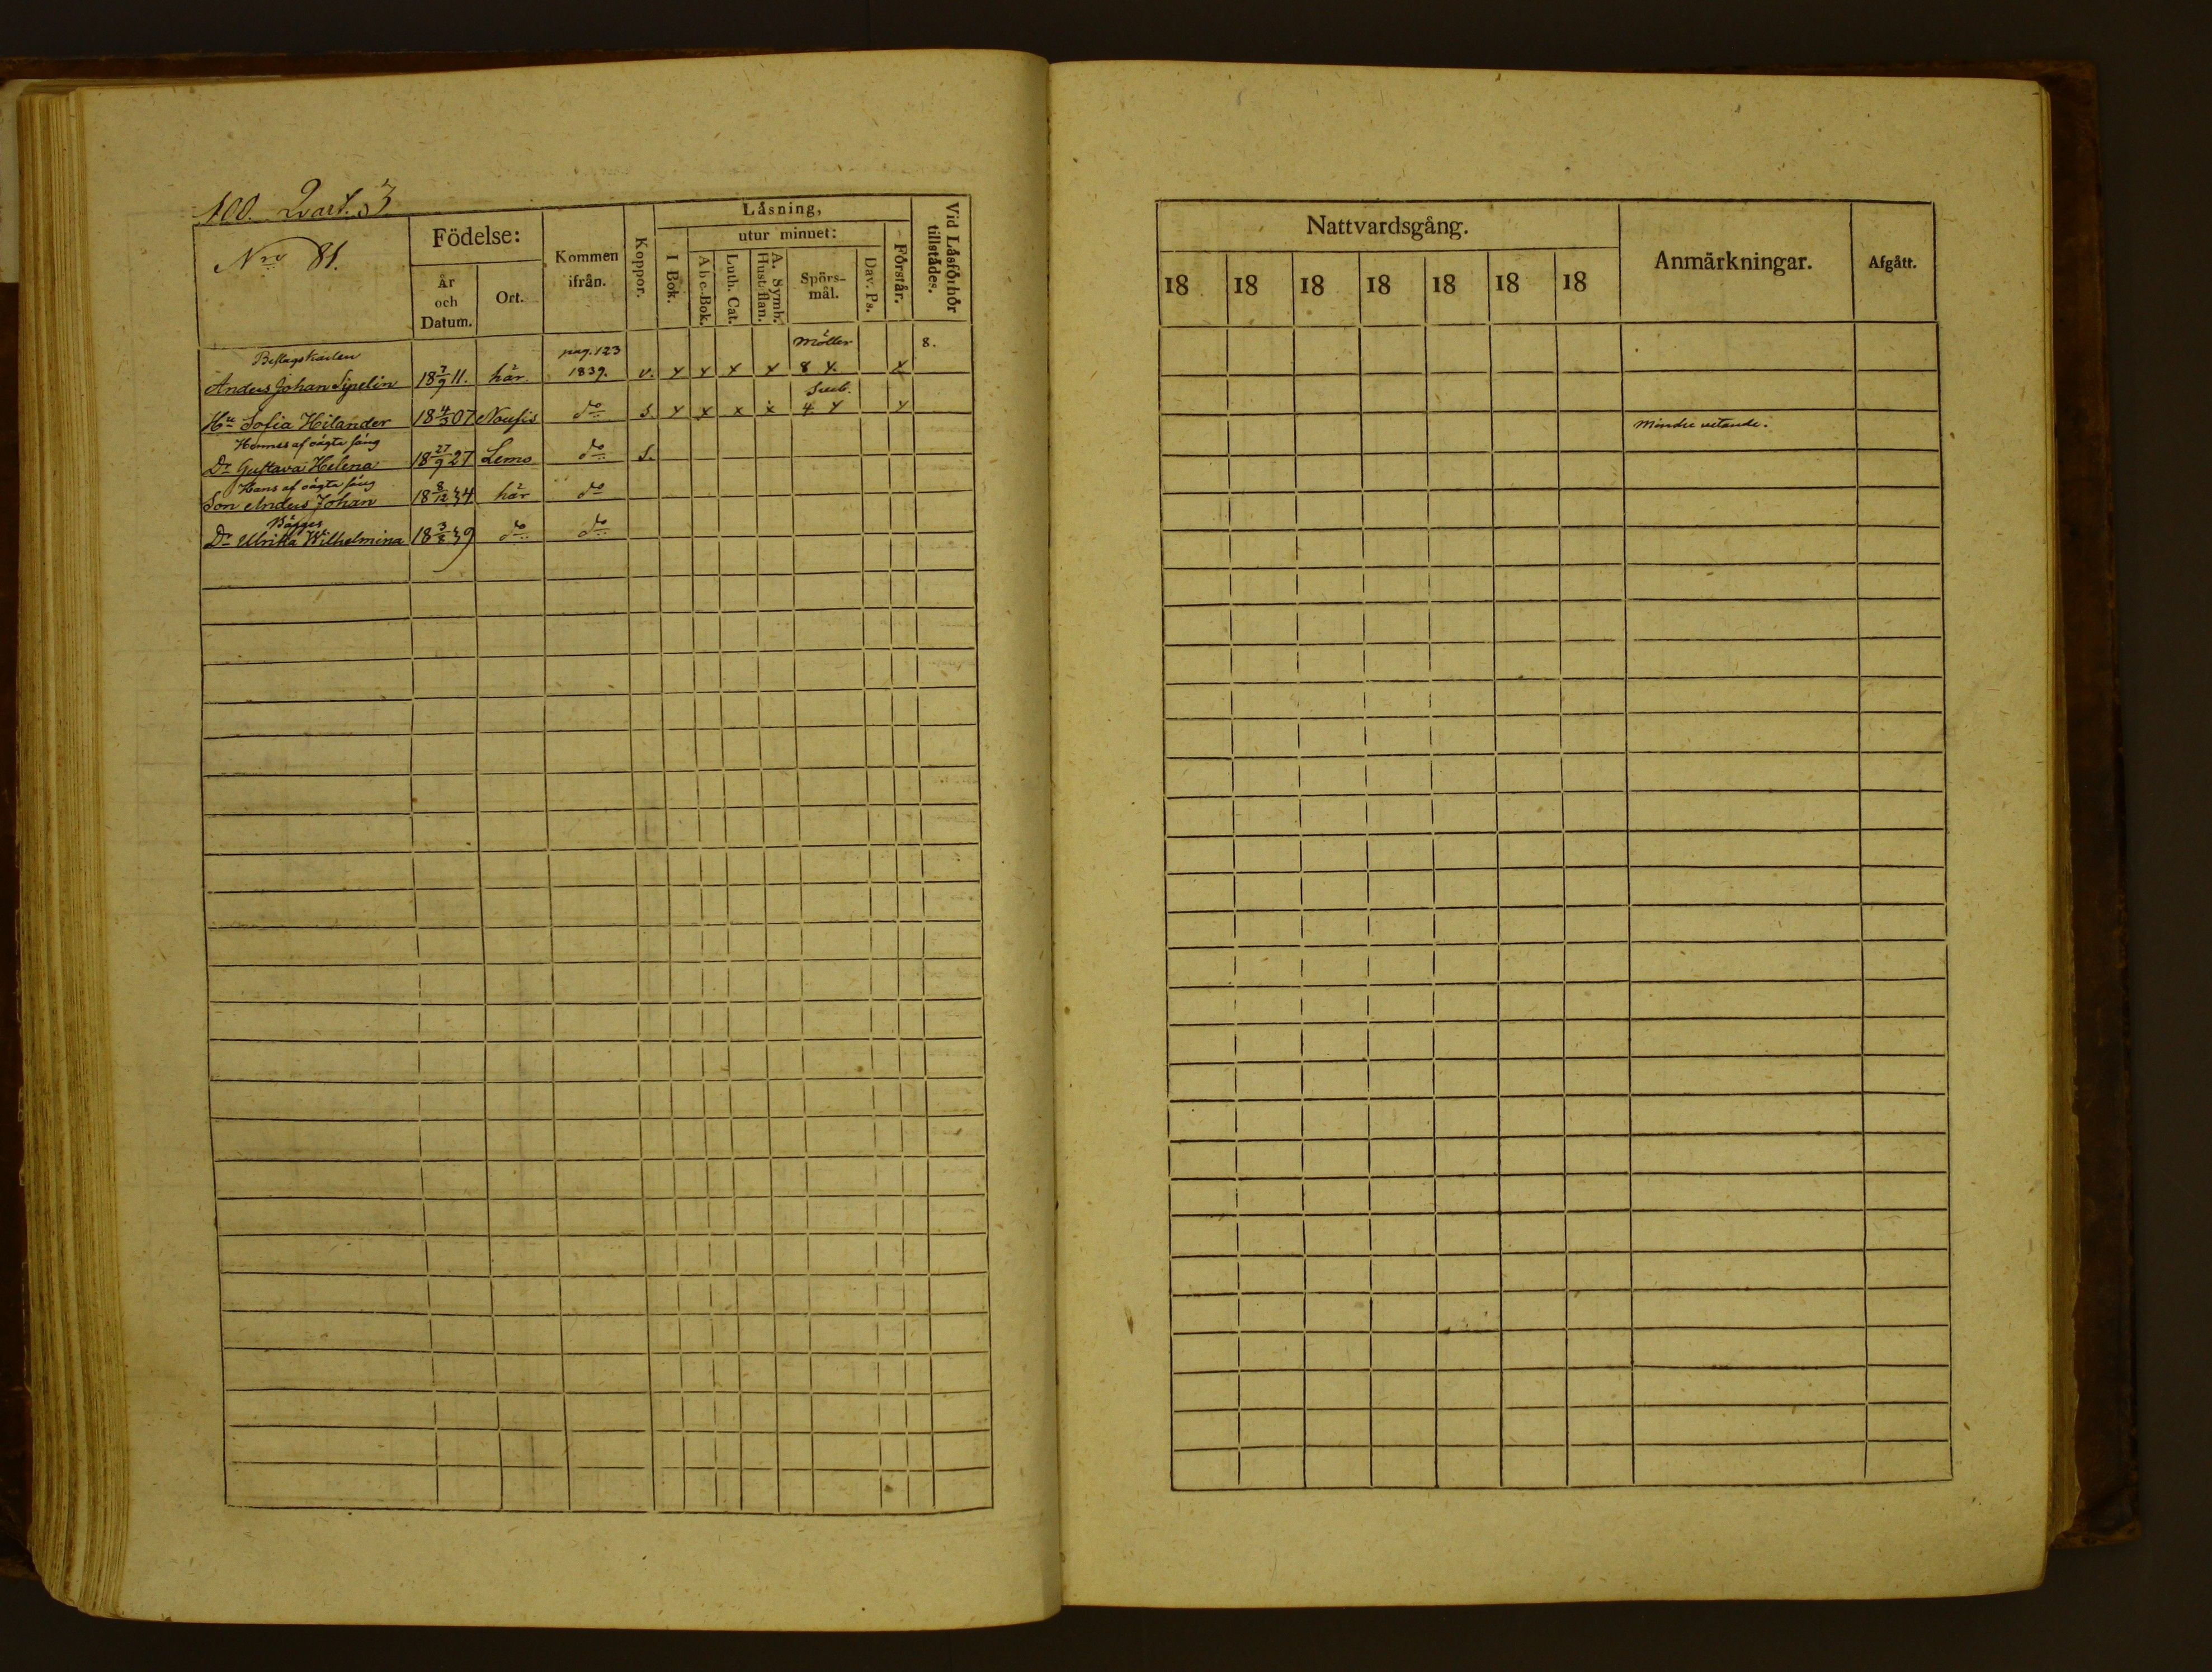 100. Qvart. 3
Nro 81.
Födelse:
År och Datum.
Ort.
Kommen ifrån.
Koppor.
Låsning,
I Bok.
utur minnet:
Abc-Bok.
Luth. Cat.
A. Symb. Hust. flan.
Spörs-mål.
Dav. Ps.
Förstår.
Vid Låsförhör tillstådes.
Nattvardsgång.
18 18 18 18 18 18 18
Anmärkningar.
Afgått.
pag. 123 Möller 8.
Anders Johan Sipelin 18 7/9 11. här. 1839. v. x x x x 8 x. x
Sveb.
Hu Sofia Hilander 18 4/5 07 Nousis do S. x x x x 4 x x Mindre vetande.
Hennes af oägta säng
Dr Gustava Helena 18 27/9 27 Lemo do S.
Hans af oägta säng
Son Anders Johan 18 8/12 34 här do
Bägges
Dr Ulrika Wilhelmina 18 39 do do